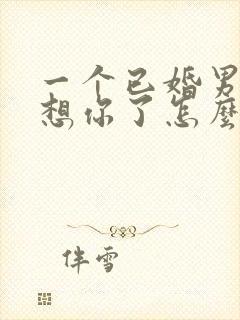 一个已婚男
想你了怎麼
伴雪